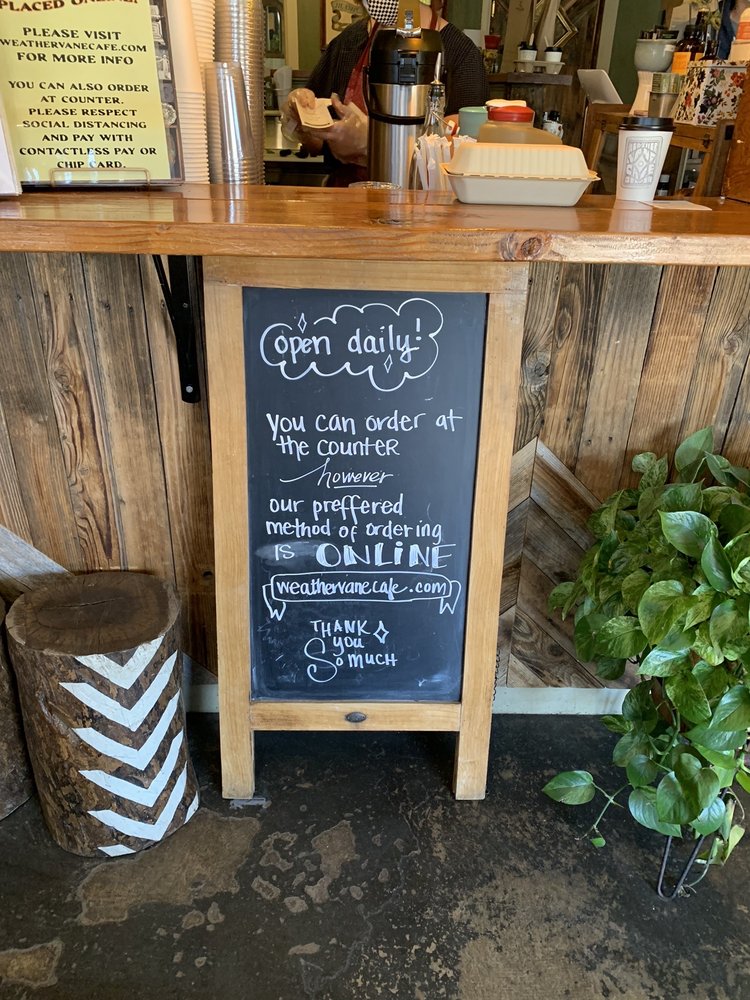 PLACED ONLINE!
PLEASE VISIT
WEATHERVANECAFE.COM
FOR MORE INFO
YOU CAN ALSO ORDER
AT COUNTER.
PLEASE RESPECT
SOCIAL DISTANCING
AND PAY WITH
CONTACTLESS PAY OR
CHIP CARD.
open daily!
you can order at
the counter
however
our preffered
method of ordering
is ONLINE
weathervanecafe.com
THANK
you
So much